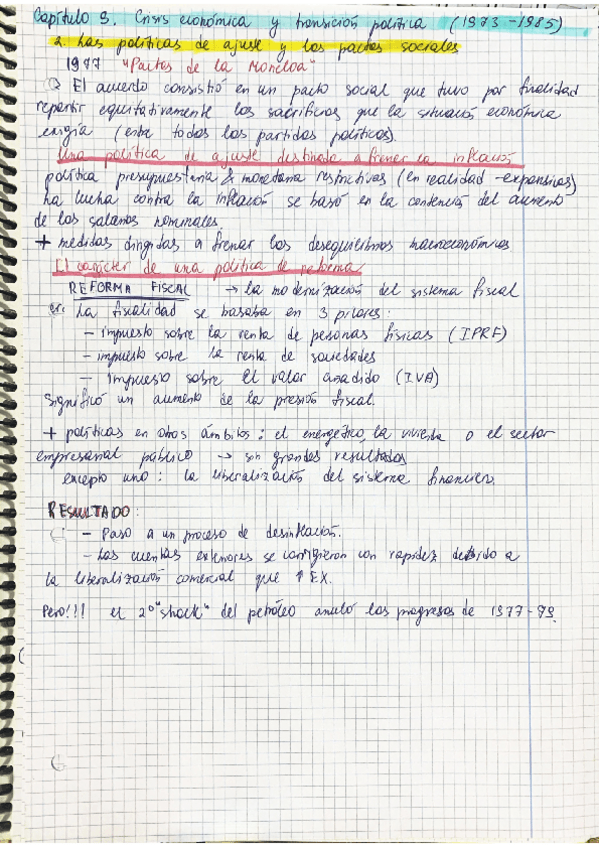 Capítulo 9. Crisis económica y transición política (1973-1985)
2. Las políticas de ajuste y los pactos sociales
1977 "Pactos de la Moncloa"
El acuerdo consistió en un pacto social que tuvo por finalidad
repartir equitativamente los sacrificios que la situación económica
exigía (entre todos los partidos políticos).
Una política de ajuste destinada a frenar la inflación
política presupuestaria & monetaria restrictivas (en realidad -expansivas)
La lucha contra la inflación se basó en la contención del aumento
de los salarios nominales
+ medidas dirigidas a frenar los desequilibrios macroeconómicos
El carácter de una política de reforma
REFORMA FISCAL → la modernización del sistema fiscal
La fiscalidad se basaba en 3 pilares:
- impuesto sobre la renta de personas físicas (IPRF)
- impuesto sobre la renta de sociedades
- impuesto sobre El valor añadido (IVA)
Significó un aumento de la presión fiscal.
+ políticas en otros ámbitos: el energético, la vivienda o el sector
empresarial público → sin grandes resultados
excepto uno: la liberalización del sistema financiero.
RESULTADO:
- Paso a un proceso de desinflación.
- Las cuentas exteriores se corrigieron con rapidez debido a
la liberalización comercial que ↑ EX.
Pero!!! el 2º "shock" del petróleo anuló los progresos de 1977-79.